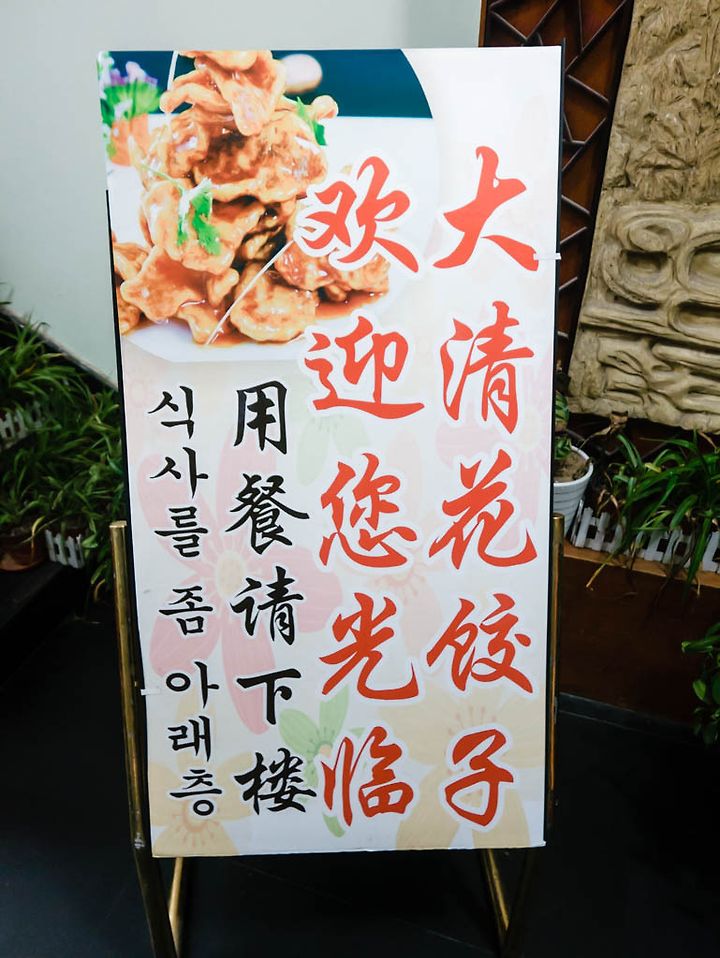 大清花饺子
欢迎您光临
用餐请下楼
식사를 좀 아래층